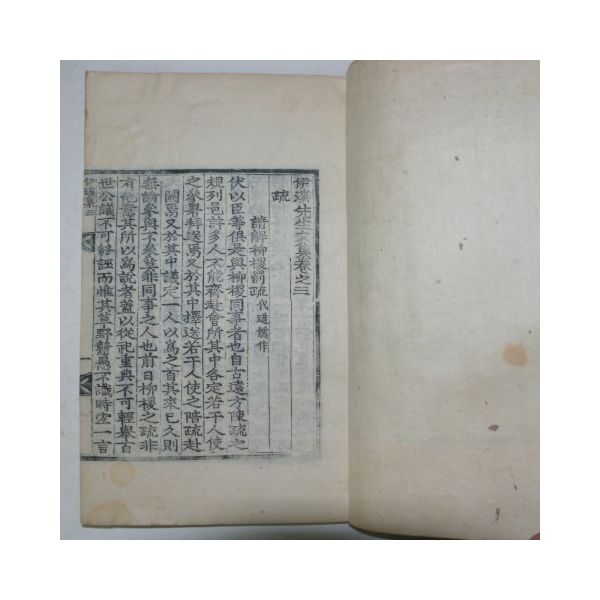 伊溪先生文集卷之三
疏
請解柳㮨罰疏 代道儒作
伏以臣等俱是與柳㮨同事者也自古遠方陳疏之
規列邑許多人不能齊赴會所其中各定若干人使
之參署拜送焉又於其中擇送若干人使之陪疏赴
闕焉又於其中議定一人以爲之首其來已久則
無論參與不參莫非同事之人也前日柳㮨之疏非
有他意其所以爲說者蓋以從祀重典不可輕擧百
世公議不可終誣而惟其草野戇愚不識時宜一言
伊溪集三
一
9